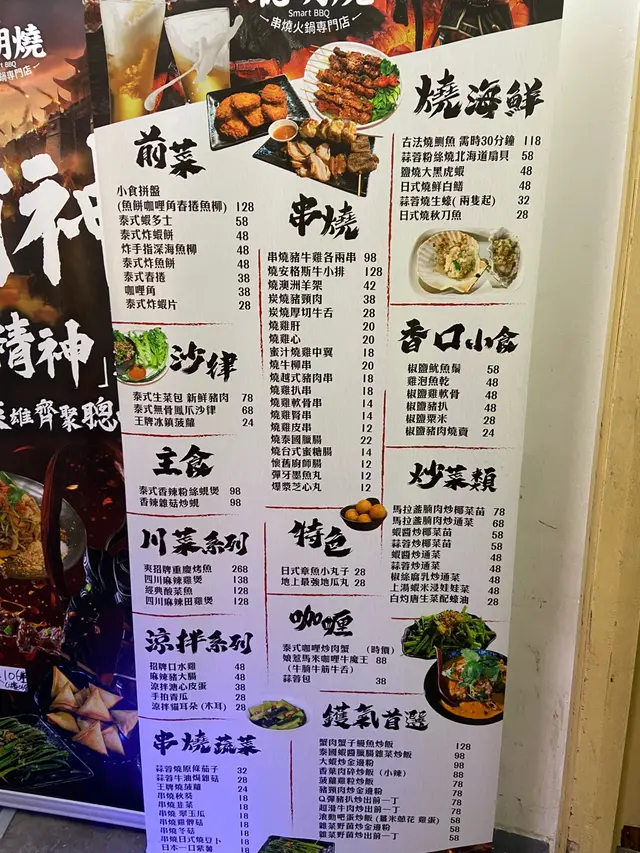 Smart BBQ
串燒火鍋專門店
前菜
小食拼盤
(魚餅咖哩角春捲魚柳) 128
泰式蝦多士 58
泰式炸蝦餅 48
炸手指深海魚柳 48
泰式炸魚餅 48
泰式春捲 38
咖哩角 38
泰式炸蝦片 28
沙律
泰式生菜包 新鮮豬肉 78
泰式無骨鳳爪沙律 68
王牌冰鎮菠蘿 24
主食
泰式香辣粉絲蜆煲 98
香辣雜菇炒蜆 98
川菜系列
爽招牌重慶烤魚 268
四川麻辣雞煲 138
經典酸菜魚 128
四川麻辣田雞煲 128
涼拌系列
招牌口水雞 48
麻辣豬大腸 48
涼拌溏心皮蛋 38
手拍青瓜 28
涼拌貓耳朵 (木耳) 28
串燒蔬菜
蒜蓉燒原條茄子 32
蒜蓉牛油焗雜菇 28
王牌燒菠蘿 24
串燒秋葵 18
串燒韮菜 18
串燒 翠玉瓜 18
串燒雞髀菇 18
串燒冬菇 18
串燒日式燒豆卜 18
日本一口紫薯 18
串燒
串燒豬牛雞各兩串 98
燒安格斯牛小排 128
燒澳洲羊架 42
炭燒豬頸肉 38
炭燒厚切牛舌 28
燒雞肝 20
燒雞心 20
蜜汁燒雞中翼 18
燒牛柳串 20
燒越式豬肉串 18
燒雞扒串 18
燒雞軟骨串 14
燒雞腎串 14
燒雞皮串 12
燒泰國臘腸 22
燒台式蜜糖腸 14
懷舊廚師腸 12
彈牙墨魚丸 12
爆漿芝心丸 12
特色
日式章魚小丸子 28
地上最強地瓜丸 28
咖喱
泰式咖哩炒肉蟹 (時價)
娘惹馬來咖哩牛魔王 88
(牛腩牛筋牛舌)
蒜蓉包 38
鑊氣首選
蟹肉蟹子鰻魚炒飯 128
泰國蝦醬臘腸雜菜炒飯 98
大蝦炒金邊粉 98
香葉肉碎炒飯 (小辣) 88
菠蘿雞粒炒飯 78
豬頸肉炒金邊粉 78
Q彈豬扒炒出前一丁 78
超滑牛肉炒出前一丁 78
雜菜野菌炒金邊粉 58
雜菜野菌炒出前一丁 58
燒海鮮
古法燒鯛魚 需時30分鐘 118
蒜蓉粉絲燒北海道扇貝 58
鹽燒大黑虎蝦 48
日式燒鮮白鱔 48
蒜蓉燒生蠔( 兩隻起) 32
日式燒秋刀魚 28
香口小食
椒鹽魷魚鬚 58
雞泡魚乾 48
椒鹽雞軟骨 48
椒鹽豬扒 48
椒鹽粟米 28
椒鹽豬肉燒賣 24
炒菜類
馬拉盞腩肉炒椰菜苗 78
馬拉盞腩肉炒通菜 68
蝦醬炒椰菜苗 58
蒜蓉炒椰菜苗 58
蝦醬炒通菜 48
蒜蓉炒通菜 48
椒絲腐乳炒通菜 48
上湯蝦米浸娃娃菜 48
白灼唐生菜配蠔油 28